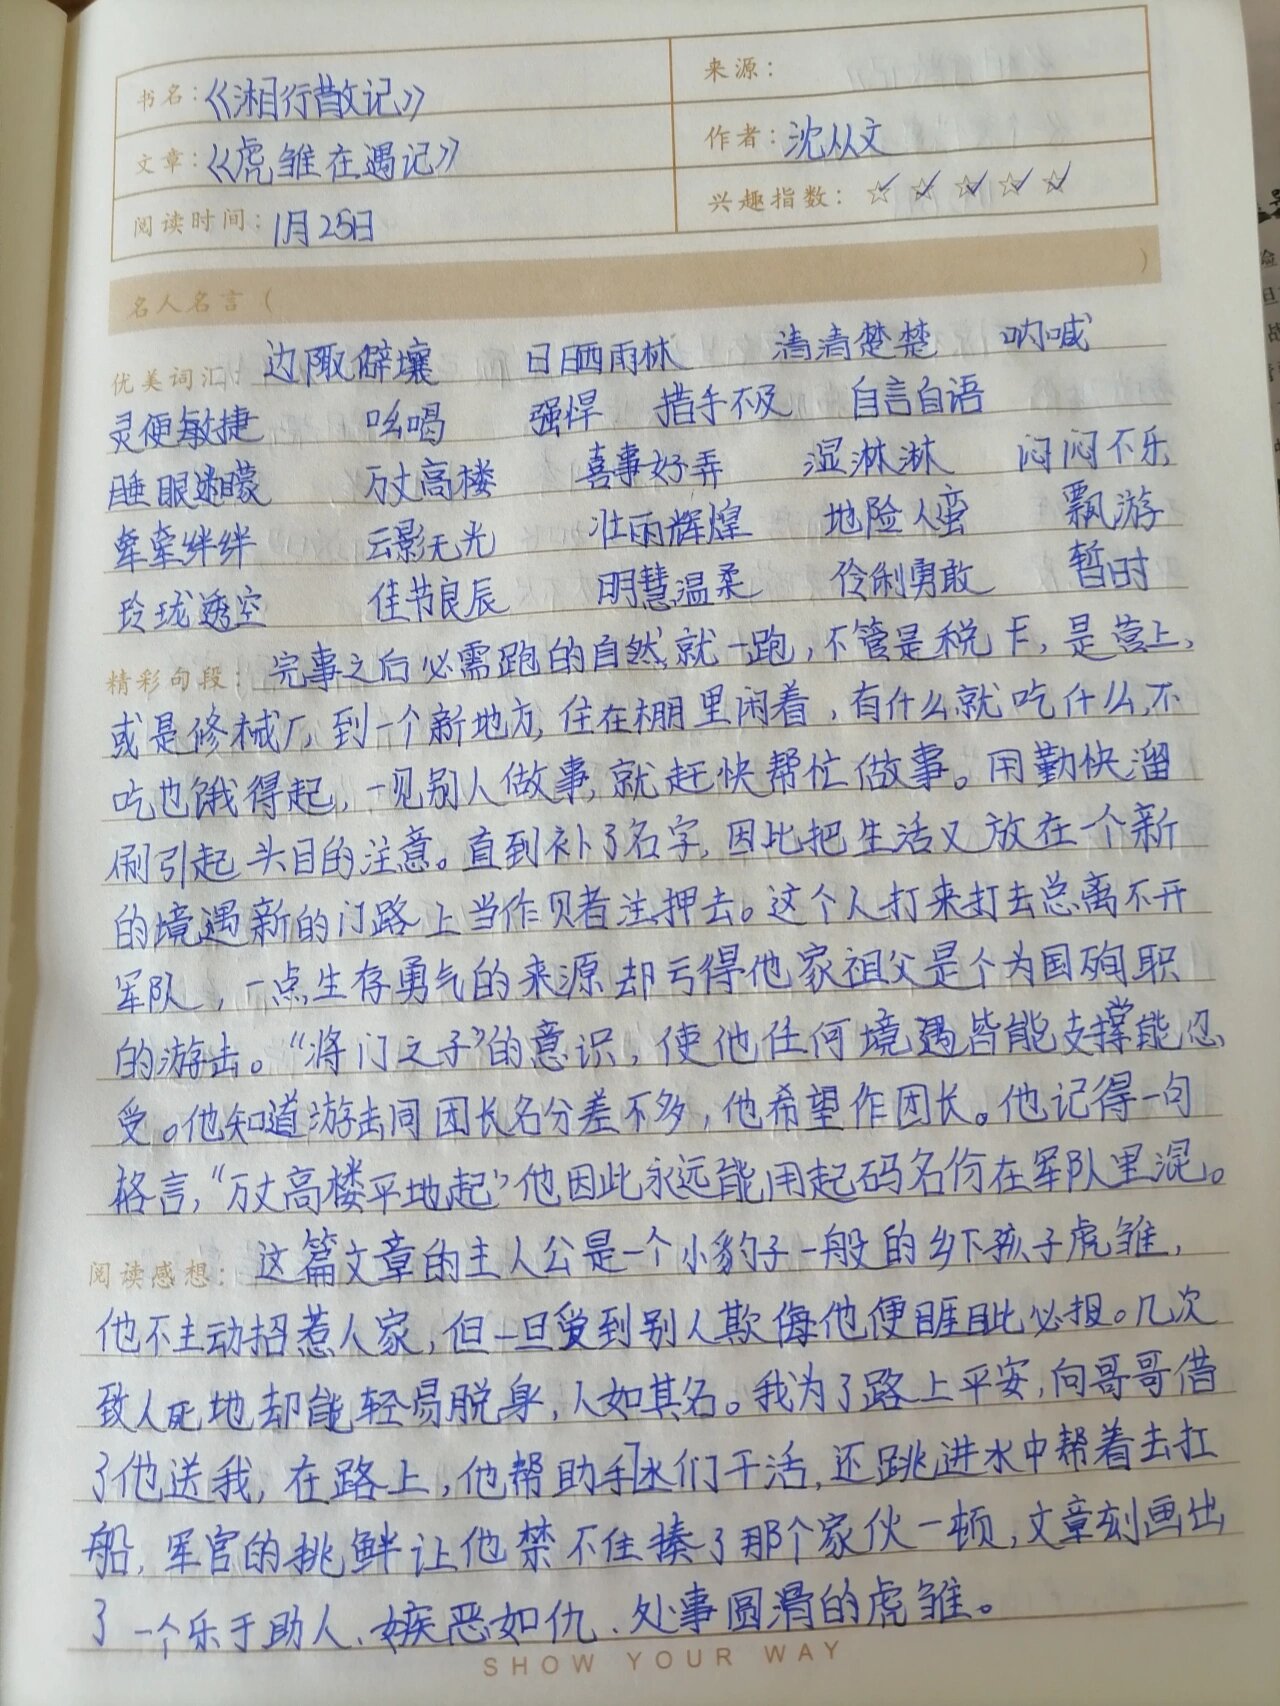 书名：《湘行散记》
来源：
文章：《虎雏在遇记》
作者：沈从文
阅读时间：1月25日
兴趣指数：☆☆☆☆☆
名人名言（ ）
优美词汇：边陬僻壤 日晒雨林 清清楚楚 呐喊
灵便敏捷 吆喝 强悍 措手不及 自言自语
睡眼迷矇 万丈高楼 喜事好弄 湿淋淋 闷闷不乐
牵牵绊绊 云影天光 壮丽辉煌 地险人蛮 飘游
玲珑透空 佳节良辰 明慧温柔 伶俐勇敢 暂时
精彩句段：完事之后必需跑的自然就一跑，不管是税卡，是营上，
或是修械厂，到一个新地方，住在棚里闲着，有什么就吃什么，不
吃也饿得起，一见别人做事，就赶快帮忙做事。用勤快溜
刷引起头目的注意。直到补了名字，因比把生活又放在一个新
的境遇新的门路上当作贝者注押去。这个人打来打去总离不开
军队，一点生存勇气的来源却亏得他家祖父是个为国殉职
的游击。“将门之子”的意识，使他任何境遇皆能支撑能忍
受。他知道游击同团长名分差不多，他希望作团长。他记得一句
格言，“万丈高楼平地起”他因此永远能用起码名份在军队里混。
阅读感想：这篇文章的主人公是一个小豹子一般的乡下孩子虎雏，
他不主动招惹人家，但一旦受到别人欺侮他便睚眦必报。几次
致人死地却能轻易脱身，人如其名。我为了路上平安，向哥哥借
了他送我，在路上，他帮助手们干活，还跳进水中帮着去扛
船，军官的挑衅让他禁不住揍了那个家伙一顿，文章刻画出
了一个乐于助人、嫉恶如仇、处事圆滑的虎雏。
SHOW YOUR WAY